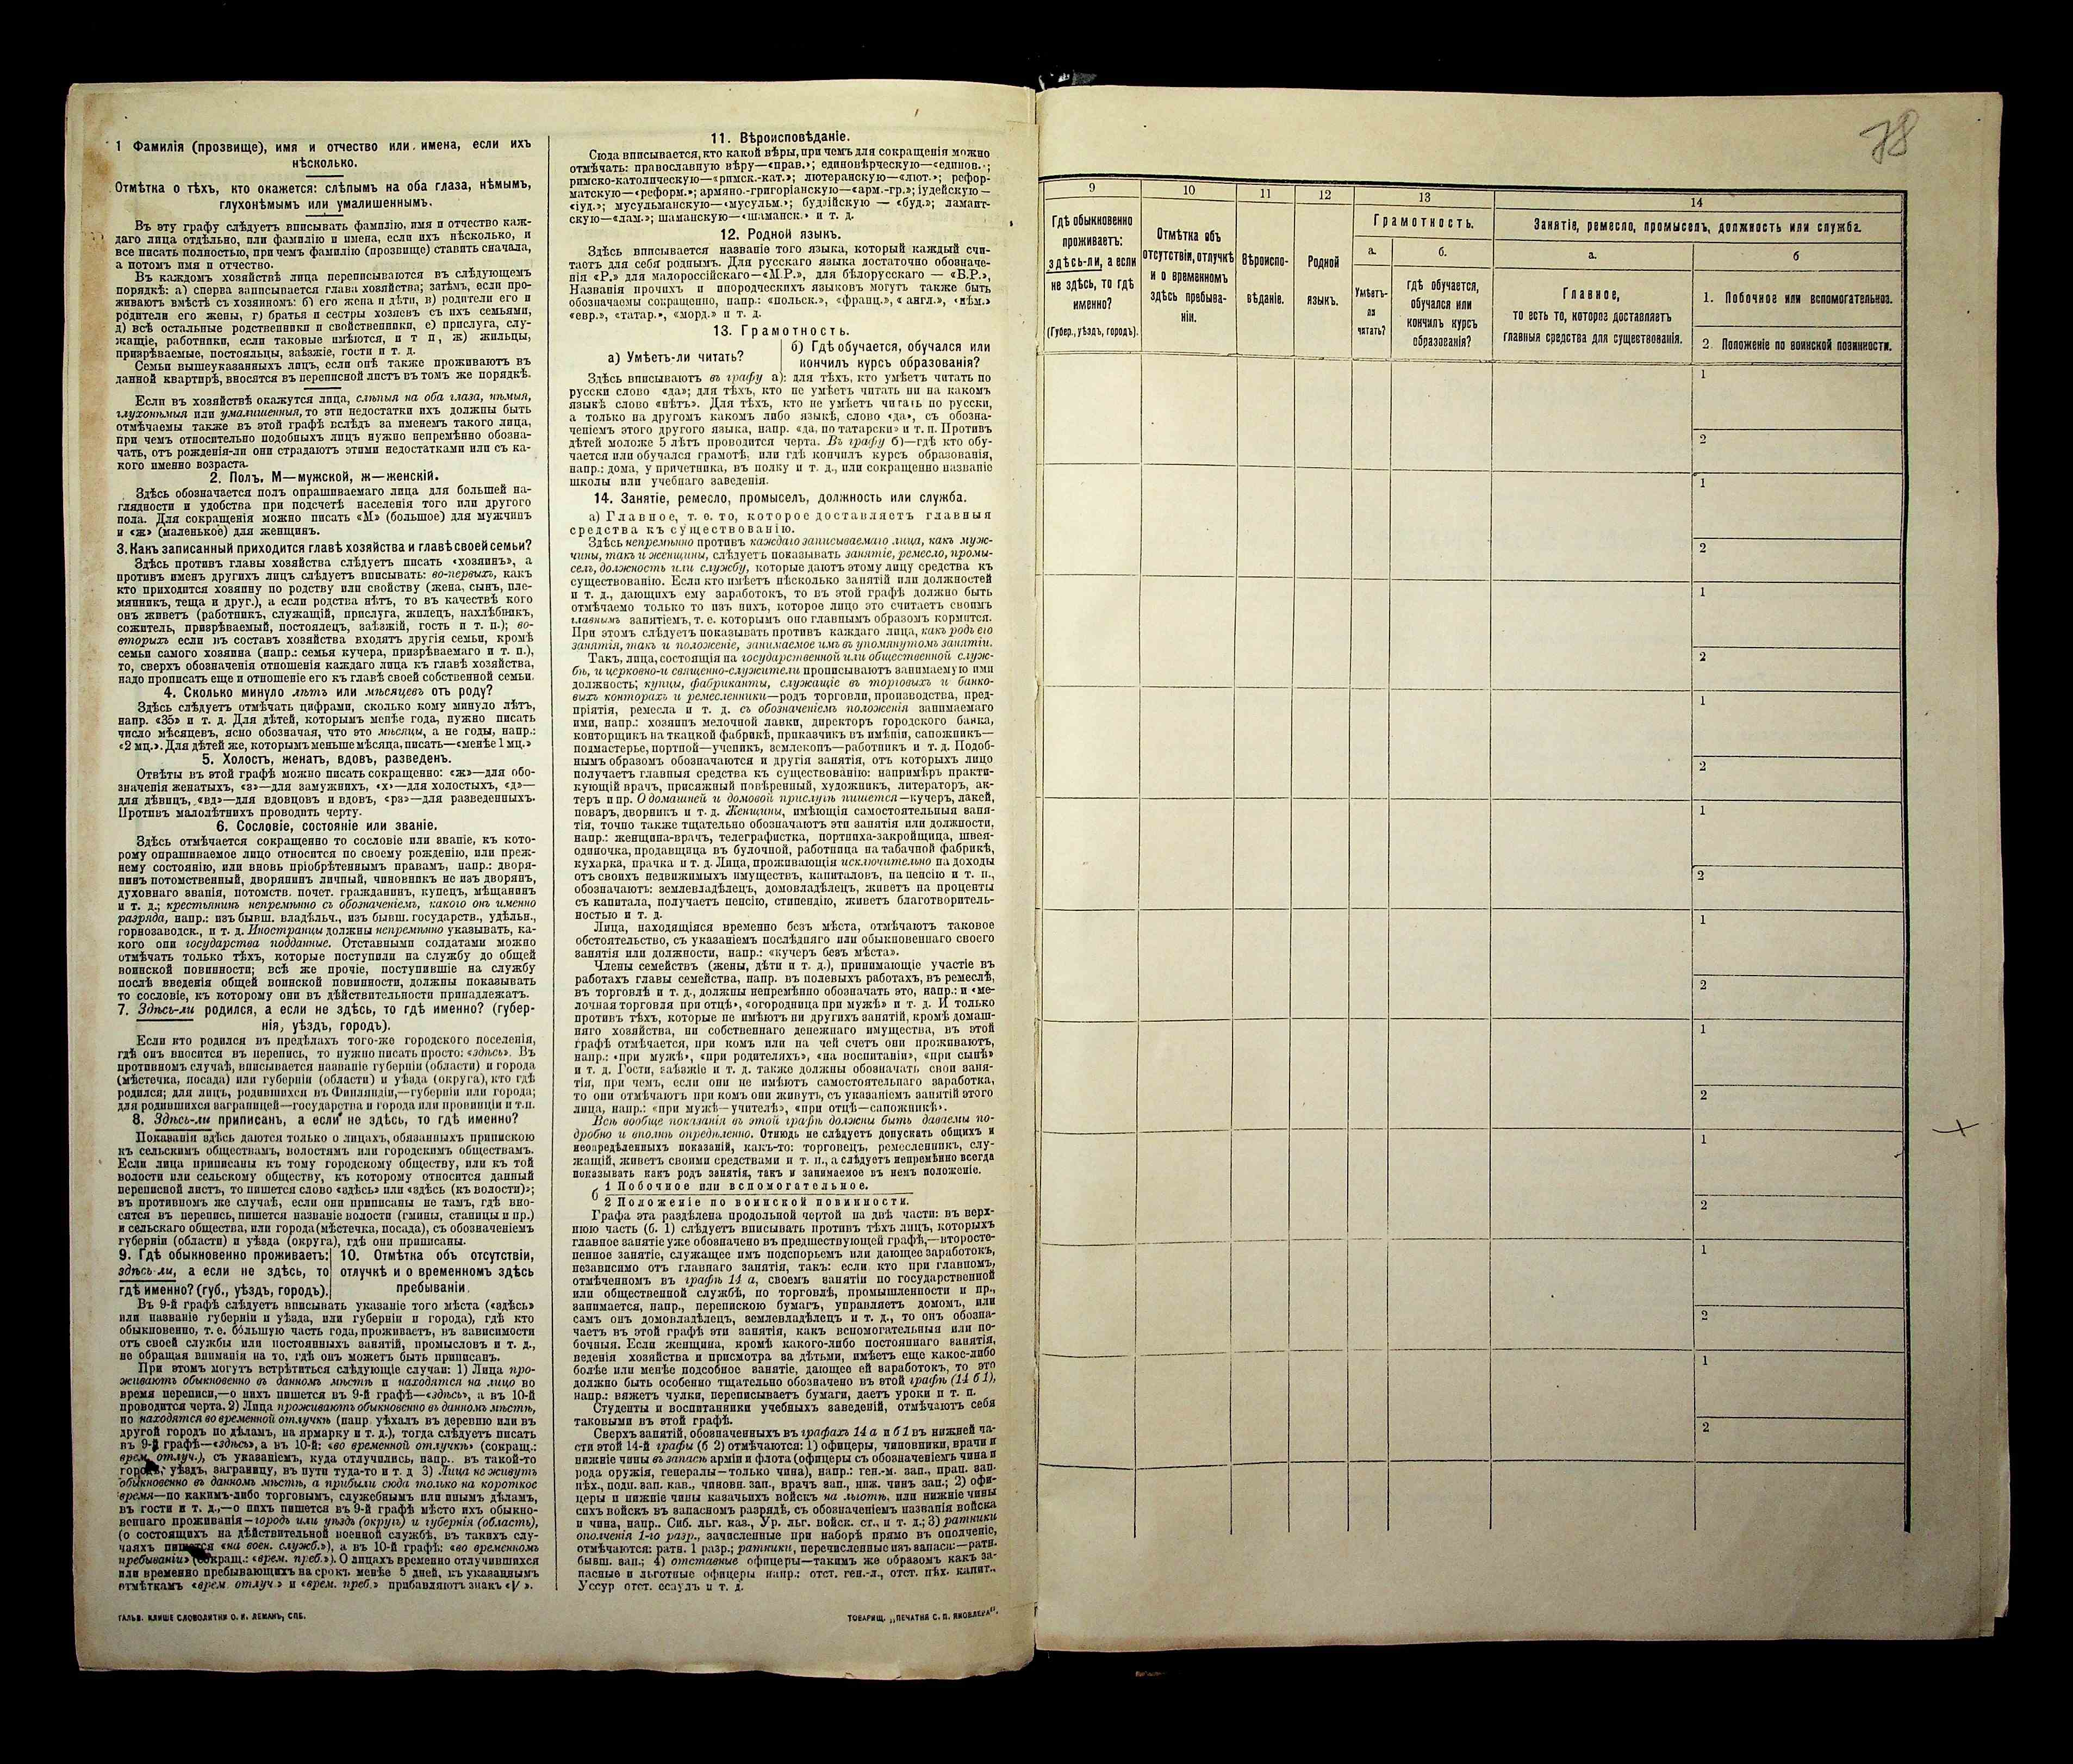 1 Фамилія (прозвище), имя и отчество или имена, если ихъ
нѣсколько.
Отмѣтка о тѣхъ, кто окажется: слѣпымъ на оба глаза, нѣмымъ,
глухонѣмымъ или умалишеннымъ.
Въ эту графу слѣдуетъ вписывать фамилію, имя и отчество каж-
даго лица отдѣльно, или фамилію и имена, если ихъ нѣсколько, и
все писать полностью, при чемъ фамилію (прозвище) ставить сначала,
а потомъ имя и отчество.
Въ каждомъ хозяйствѣ лица переписываются въ слѣдующемъ
порядкѣ: а) сперва записывается глава хозяйства; затѣмъ, если про-
живаютъ вмѣстѣ съ хозяиномъ: б) его жена и дѣти, в) родители его и
родители его жены, г) братья и сестры хозяевъ съ ихъ семьями,
д) всѣ остальные родственники и свойственники, е) прислуга, слу-
жащіе, работники, если таковые имѣются, и т п, ж) жильцы,
призрѣваемые, постояльцы, заѣзжіе, гости и т. д.
Семьи вышеуказанныхъ лицъ, если онѣ также проживаютъ въ
данной квартирѣ, вносятся въ переписной листъ въ томъ же порядкѣ.
Если въ хозяйствѣ окажутся лица, слѣпыя на оба глаза, нѣмыя,
глухонѣмыя или умалишенныя, то эти недостатки ихъ должны быть
отмѣчаемы также въ этой графѣ вслѣдъ за именемъ такого лица,
при чемъ относительно подобныхъ лицъ нужно непремѣнно обозна-
чать, отъ рожденія-ли они страдаютъ этими недостатками или съ ка-
кого именно возраста.
2. Полъ. М—мужской, ж—женскій.
Здѣсь обозначается полъ опрашиваемаго лица для большей на-
глядности и удобства при подсчетѣ населенія того или другого
пола. Для сокращенія можно писать «М» (большое) для мужчинъ
и «ж» (маленькое) для женщинъ.
3. Какъ записанный приходится главѣ хозяйства и главѣ своей семьи?
Здѣсь противъ главы хозяйства слѣдуетъ писать «хозяинъ», а
противъ именъ другихъ лицъ слѣдуетъ вписывать: во-первыхъ, какъ
кто приходится хозяину по родству или свойству (жена, сынъ, пле-
мянникъ, теща и друг.), а если родства нѣтъ, то въ качествѣ кого
онъ живетъ (работникъ, служащій, прислуга, жилецъ, нахлѣбникъ,
сожитель, призрѣваемый, постоялецъ, заѣзжій, гость и т. п.); во-
вторыхъ если въ составъ хозяйства входятъ другія семьи, кромѣ
семьи самого хозяина (напр.: семья кучера, призрѣваемаго и т. п.),
то, сверхъ обозначенія отношенія каждаго лица къ главѣ хозяйства,
надо прописать еще и отношеніе его къ главѣ своей собственной семьи.
4. Сколько минуло лѣтъ или мѣсяцевъ отъ роду?
Здѣсь слѣдуетъ отмѣчать цифрами, сколько кому минуло лѣтъ,
напр. «35» и т. д. Для дѣтей, которымъ менѣе года, нужно писать
число мѣсяцевъ, ясно обозначая, что это мѣсяцы, а не годы, напр.:
«2 мц.». Для дѣтей же, которымъ меньше мѣсяца, писать—«менѣе 1 мц.»
5. Холостъ, женатъ, вдовъ, разведенъ.
Отвѣты въ этой графѣ можно писать сокращенно: «ж»—для обо-
значенія женатыхъ, «з»—для замужнихъ, «х»—для холостыхъ, «д»—
для дѣвицъ, «вд»—для вдовцовъ и вдовъ, «рз»—для разведенныхъ.
Противъ малолѣтнихъ проводить черту.
6. Сословіе, состояніе или званіе.
Здѣсь отмѣчается сокращенно то сословіе или званіе, къ кото-
рому опрашиваемое лицо относится по своему рожденію, или преж-
нему состоянію, или вновь пріобрѣтеннымъ правамъ, напр.: дворя-
нинъ потомственный, дворянинъ личный, чиновникъ не изъ дворянъ,
духовнаго званія, потомств. почет. гражданинъ, купецъ, мѣщанинъ
и т. д.; крестьянинъ непремѣнно съ обозначеніемъ, какого онъ именно
разряда, напр.: изъ бывш. владѣльч., изъ бывш. государств., удѣльн.,
горнозаводск., и т. д. Иностранцы должны непремѣнно указывать, ка-
кого они государства подданные. Отставными солдатами можно
отмѣчать только тѣхъ, которые поступили на службу до общей
воинской повинности; всѣ же прочіе, поступившіе на службу
послѣ введенія общей воинской повинности, должны показывать
то сословіе, къ которому они въ дѣйствительности принадлежатъ.
7. Здѣсь-ли родился, а если не здѣсь, то гдѣ именно? (губер-
нія, уѣздъ, городъ).
Если кто родился въ предѣлахъ того-же городского поселенія,
гдѣ онъ вносится въ перепись, то нужно писать просто: «здѣсь». Въ
противномъ случаѣ, вписывается названіе губерніи (области) и города
(мѣстечка, посада) или губерніи (области) и уѣзда (округа), кто гдѣ
родился; для лицъ, родившихся въ Финляндіи,—губерніи или города;
для родившихся заграницей—государства и города или провинціи и т.п.
8. Здѣсь-ли приписанъ, а если не здѣсь, то гдѣ именно?
Показанія здѣсь даются только о лицахъ, обязанныхъ припискою
къ сельскимъ обществамъ, волостямъ или городскимъ обществамъ.
Если лица приписаны къ тому городскому обществу, или къ той
волости или сельскому обществу, къ которому относится данный
переписной листъ, то пишется слово «здѣсь» или «здѣсь (къ волости)»;
въ противномъ же случаѣ, если они приписаны не тамъ, гдѣ вно-
сятся въ перепись, пишется названіе волости (гмины, станицы и пр.)
и сельскаго общества, или города (мѣстечка, посада), съ обозначеніемъ
губерніи (области) и уѣзда (округа), гдѣ они приписаны.
9. Гдѣ обыкновенно проживаетъ:
здѣсь ли, а если не здѣсь, то
гдѣ именно? (губ., уѣздъ, городъ).
10. Отмѣтка объ отсутствіи,
отлучкѣ и о временномъ здѣсь
пребываніи.
Въ 9-й графѣ слѣдуетъ вписывать указаніе того мѣста («здѣсь»
или названіе губерніи и уѣзда, или губерніи и города), гдѣ кто
обыкновенно, т. е. бо́льшую часть года, проживаетъ, въ зависимости
отъ своей службы или постоянныхъ занятій, промысловъ и т. д.,
не обращая вниманія на то, гдѣ онъ можетъ быть приписанъ.
При этомъ могутъ встрѣтиться слѣдующіе случаи: 1) Лица про-
живаютъ обыкновенно въ данномъ мѣстѣ и находятся на лицо во
время переписи,—о нихъ пишется въ 9-й графѣ—«здѣсь», а въ 10-й
проводится черта. 2) Лица проживаютъ обыкновенно въ данномъ мѣстѣ,
но находятся во временной отлучкѣ (напр. уѣхалъ въ деревню или въ
другой городъ по дѣламъ, на ярмарку и т. д.), тогда слѣдуетъ писать
въ 9-й графѣ—«здѣсь», а въ 10-й: «во временной отлучкѣ» (сокращ.:
врем. отлуч.), съ указаніемъ, куда отлучились, напр.. въ такой-то
городъ, уѣздъ, заграницу, въ пути туда-то и т. д 3) Лица не живутъ
обыкновенно въ данномъ мѣстѣ, а прибыли сюда только на короткое
время—по какимъ-либо торговымъ, служебнымъ или инымъ дѣламъ,
въ гости и т. д.,—о нихъ пишется въ 9-й графѣ мѣсто ихъ обыкно-
веннаго проживанія—городъ или уѣздъ (округъ) и губернія (область),
(о состоящихъ на дѣйствительной военной службѣ, въ такихъ слу-
чаяхъ пишется «на воен. служб.»), а въ 10-й графѣ: «во временномъ
пребываніи» (сокращ.: «врем. преб.»). О лицахъ временно отлучившихся
или временно пребывающихъ на срокъ менѣе 5 дней, къ указаннымъ
отмѣткамъ «врем. отлуч.» и «врем. преб.» прибавляютъ знакъ «V».
ГАЛЬВ. КЛИШЕ СЛОВОЛИТНИ О. И. ЛЕМАНЪ, СПБ.
11. Вѣроисповѣданіе.
Сюда вписывается, кто какой вѣры, при чемъ для сокращенія можно
отмѣчать: православную вѣру—«прав.»; единовѣрческую—«единов.»;
римско-католическую—«римск.-кат.»; лютеранскую—«лют.»; рефор-
матскую—«реформ.»; армяно-григоріанскую—«арм.-гр.»; іудейскую—
«іуд.»; мусульманскую—«мусульм.»; буддійскую — «буд.»; ламаит-
скую—«лам.»; шаманскую—«шаманск.» и т. д.
12. Родной языкъ.
Здѣсь вписывается названіе того языка, который каждый счи-
таетъ для себя роднымъ. Для русскаго языка достаточно обозначе-
нія «Р.» для малороссійскаго—«М.Р.», для бѣлорусскаго — «Б.Р.»,
Названія прочихъ и инородческихъ языковъ могутъ также быть
обозначаемы сокращенно, напр.: «польск.», «франц.», «англ.», «нѣм.»
«евр.», «татар.», «морд.» и т. д.
13. Грамотность.
а) Умѣетъ-ли читать?
б) Гдѣ обучается, обучался или
кончилъ курсъ образованія?
Здѣсь вписываютъ въ графу а): для тѣхъ, кто умѣетъ читать по
русски слово «да»; для тѣхъ, кто не умѣетъ читать ни на какомъ
языкѣ слово «нѣтъ». Для тѣхъ, кто не умѣетъ читать по русски,
а только на другомъ какомъ либо языкѣ, слово «да», съ обозна-
ченіемъ этого другого языка, напр. «да, по татарски» и т. п. Противъ
дѣтей моложе 5 лѣтъ проводится черта. Въ графу б)—гдѣ кто обу-
чается или обучался грамотѣ, или гдѣ кончилъ курсъ образованія,
напр.: дома, у причетника, въ полку и т. д., или сокращенно названіе
школы или учебнаго заведенія.
14. Занятіе, ремесло, промыселъ, должность или служба.
а) Главное, т. е. то, которое доставляетъ главныя
средства къ существованію.
Здѣсь непремѣнно противъ каждаго записываемаго лица, какъ муж-
чины, такъ и женщины, слѣдуетъ показывать занятіе, ремесло, промы-
селъ, должность или службу, которые даютъ этому лицу средства къ
существованію. Если кто имѣетъ нѣсколько занятій или должностей
и т. д., дающихъ ему заработокъ, то въ этой графѣ должно быть
отмѣчаемо только то изъ нихъ, которое лицо это считаетъ своимъ
главнымъ занятіемъ, т. е. которымъ оно главнымъ образомъ кормится.
При этомъ слѣдуетъ показывать противъ каждаго лица, какъ родъ его
занятія, такъ и положеніе, занимаемое имъ въ упомянутомъ занятіи.
Такъ, лица, состоящія на государственной или общественной служ-
бѣ, и церковно-и священно-служители прописываютъ занимаемую ими
должность; купцы, фабриканты, служащіе въ торговыхъ и банко-
выхъ конторахъ и ремесленники—родъ торговли, производства, пред-
пріятія, ремесла и т. д. съ обозначеніемъ положенія занимаемаго
ими, напр.: хозяинъ мелочной лавки, директоръ городского банка,
конторщикъ на ткацкой фабрикѣ, приказчикъ въ имѣніи, сапожникъ—
подмастерье, портной—ученикъ, землекопъ—работникъ и т. д. Подоб-
нымъ образомъ обозначаются и другія занятія, отъ которыхъ лицо
получаетъ главныя средства къ существованію: напримѣръ практи-
кующій врачъ, присяжный повѣренный, художникъ, литераторъ, ак-
теръ и пр. О домашней и домовой прислугѣ пишется—кучеръ, лакей,
поваръ, дворникъ и т. д. Женщины, имѣющія самостоятельныя заня-
тія, точно также тщательно обозначаютъ эти занятія или должности,
напр.: женщина-врачъ, телеграфистка, портниха-закройщица, швея-
одиночка, продавщица въ булочной, работница на табачной фабрикѣ,
кухарка, прачка и т. д. Лица, проживающія исключительно на доходы
отъ своихъ недвижимыхъ имуществъ, капиталовъ, на пенсію и т. п.,
обозначаютъ: землевладѣлецъ, домовладѣлецъ, живетъ на проценты
съ капитала, получаетъ пенсію, стипендію, живетъ благотворитель-
ностью и т. д.
Лица, находящіяся временно безъ мѣста, отмѣчаютъ таковое
обстоятельство, съ указаніемъ послѣдняго или обыкновеннаго своего
занятія или должности, напр.: «кучеръ безъ мѣста».
Члены семействъ (жены, дѣти и т. д.), принимающіе участіе въ
работахъ главы семейства, напр. въ полевыхъ работахъ, въ ремеслѣ,
въ торговлѣ и т. д., должны непремѣнно обозначать это, напр.: и «ме-
лочная торговля при отцѣ», «огородница при мужѣ» и т. д. И только
противъ тѣхъ, которые не имѣютъ ни другихъ занятій, кромѣ домаш-
няго хозяйства, ни собственнаго денежнаго имущества, въ этой
графѣ отмѣчается, при комъ или на чей счетъ они проживаютъ,
напр.: «при мужѣ», «при родителяхъ», «на воспитаніи», «при сынѣ»
и т. д. Гости, заѣзжіе и т. д. также должны обозначать свои заня-
тія, при чемъ, если они не имѣютъ самостоятельнаго заработка,
то они отмѣчаютъ при комъ они живутъ, съ указаніемъ занятій этого
лица, напр.: «при мужѣ—учителѣ», «при отцѣ—сапожникѣ».
Всѣ вообще показанія въ этой графѣ должны быть даваемы по-
дробно и вполнѣ опредѣленно. Отнюдь не слѣдуетъ допускать общихъ и
неопредѣленныхъ показаній, какъ-то: торговецъ, ремесленникъ, слу-
жащій, живетъ своими средствами и т. п., а слѣдуетъ непремѣнно всегда
показывать какъ родъ занятія, такъ и занимаемое въ немъ положеніе.
б
1 Побочное или вспомогательное.
2 Положеніе по воинской повинности.
Графа эта раздѣлена продольной чертой на двѣ части: въ верх-
нюю часть (б. 1) слѣдуетъ вписывать противъ тѣхъ лицъ, которыхъ
главное занятіе уже обозначено въ предшествующей графѣ,—второсте-
пенное занятіе, служащее имъ подспорьемъ или дающее заработокъ,
независимо отъ главнаго занятія, такъ: если кто при главномъ,
отмѣченномъ въ графѣ 14 а, своемъ занятіи по государственной
или общественной службѣ, по торговлѣ, промышленности и пр.,
занимается, напр., перепискою бумагъ, управляетъ домомъ, или
самъ онъ домовладѣлецъ, землевладѣлецъ и т. д., то онъ обозна-
чаетъ въ этой графѣ эти занятія, какъ вспомогательныя или по-
бочныя. Если женщина, кромѣ какого-либо постояннаго занятія,
веденія хозяйства и присмотра за дѣтьми, имѣетъ еще какое-либо
болѣе или менѣе подсобное занятіе, дающее ей заработокъ, то это
должно быть особенно тщательно обозначено въ этой графѣ (14 б 1),
напр.: вяжетъ чулки, переписываетъ бумаги, даетъ уроки и т. п.
Студенты и воспитанники учебныхъ заведеній, отмѣчаютъ себя
таковыми въ этой графѣ.
Сверхъ занятій, обозначенныхъ въ графахъ 14 а и б 1 въ нижней ча-
сти этой 14-й графы (б 2) отмѣчаются: 1) офицеры, чиновники, врачи и
нижніе чины въ запасѣ арміи и флота (офицеры съ обозначеніемъ чина и
рода оружія, генералы—только чина), напр.: ген.-м. зап., прап. зап.
пѣх., подп. зап. кав., чиновн. зап., врачъ зап., ниж. чинъ зап.; 2) офи-
церы и нижніе чины казачьихъ войскъ на льготѣ, или нижніе чины
сихъ войскъ въ запасномъ разрядѣ, съ обозначеніемъ названія войска
и чина, напр.. Сиб. льг. каз., Ур. льг. войск. ст., и т. д.; 3) ратники
ополченія 1-го разр., зачисленные при наборѣ прямо въ ополченіе,
отмѣчаются: ратн. 1 разр.; ратники, перечисленные изъ запаса:—ратн.
бывш. зап.; 4) отставные офицеры—такимъ же образомъ какъ за-
пасные и льготные офицеры напр.: отст. ген.-л., отст. пѣх. капит.,
Уссур отст. есаулъ и т. д.
ТОВАРИЩ. „ПЕЧАТНЯ С. П. ЯКОВЛЕВА".
78
9
10
11
12
13
14
Гдѣ обыкновенно
проживаетъ:
здѣсь-ли, а если
не здѣсь, то гдѣ
именно?
(Губер., уѣздъ, городъ).
Отмѣтка объ
отсутствіи, отлучкѣ
и о временномъ
здѣсь пребыва-
ніи.
Вѣроиспо-
вѣданіе.
Родной
языкъ.
Грамотность.
а.
б.
Умѣетъ-
ли
читать?
гдѣ обучается,
обучался или
кончилъ курсъ
образованія?
Занятіе, ремесло, промыселъ, должность или служба.
а.
б
Главное,
то есть то, которое доставляетъ
главныя средства для существованія.
1. Побочное или вспомогательное.
2. Положеніе по воинской повинности.
1
2
1
2
1
2
1
2
1
2
1
2
1
2
1
2
1
2
1
2